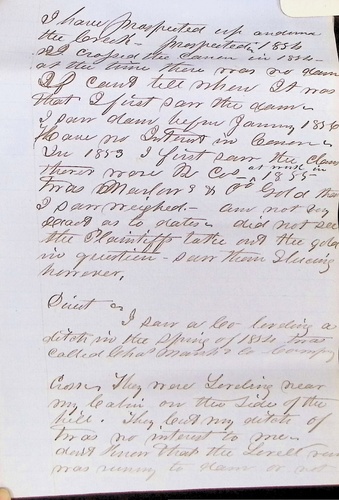 I have prospected up and down
the Creek - prospected in 1854
I crossed the Canon in 1854 -
at the time there was no dam
I cant tell when it was
that I first saw the dam -
I saw dam before January 1856
have no Interest in Cañon -
In 1853 I first saw the claim
there were B Cos at work in 1855 -
twas & Co Gold that
I saw weighed - am not
exact as to dates - did not see
the Plaintiffs take out the gold
in question - saw them Sluicing
however,
Direct
I saw a Co leveling a
ditch in the Spring of 1854 twas
called Chas Marsh & Company
Cross - They were Leveling near
my Cabin on the side of the
hill. They cut my ditch of
twas no interest to me -
dont Know that the Levell
was runing to dam or not